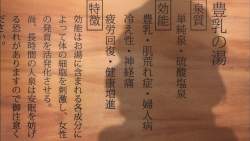 豊乳の湯
泉質
単純泉・硫酸塩泉
効能
豊乳・肌荒れ症・婦人病
冷え性・神経痛
疲労回復・健康増進
特徴
効能はお湯に含まれる各成分に
よって体の細胞を刺激し、女性
の発育を活発化させる。
尚、長時間の入泉は安眠を妨げ
る恐れがありますので御注意く
ださい。